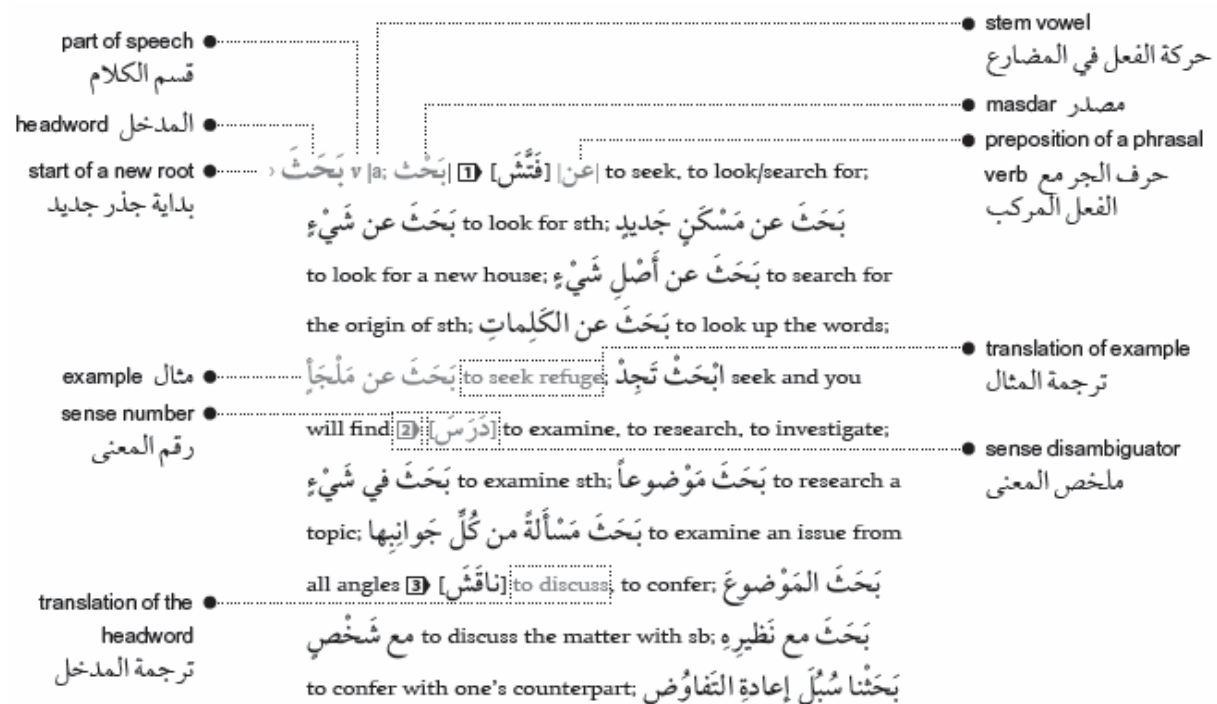 part of speech
قسم الكلام
headword المدخل
start of a new root
بداية جذر جديد
example مثال
sense number
رقم المعنى
translation of the
headword
ترجمة المدخل
› بَحَثَ v |a; بَحْث| 1 [فَتَّشَ] |عن| to seek, to look/search for;
بَحَثَ عن شَيْءٍ to look for sth; بَحَثَ عن مَسْكَنٍ جَديدٍ
to look for a new house; بَحَثَ عن أَصْلِ شَيْءٍ to search for
the origin of sth; بَحَثَ عن الكَلِماتِ to look up the words;
بَحَثَ عن مَلْجَأٍ to seek refuge; ابْحَثْ تَجِدْ seek and you
will find 2 [دَرَسَ] to examine, to research, to investigate;
بَحَثَ في شَيْءٍ to examine sth; بَحَثَ مَوْضوعاً to research a
topic; بَحَثَ مَسْأَلةً من كُلِّ جَوانِبِها to examine an issue from
all angles 3 [ناقَشَ] to discuss, to confer; بَحَثَ المَوْضوعَ
مع شَخْصٍ to discuss the matter with sb; بَحَثَ مع نَظيرِهِ
to confer with one's counterpart; بَحَثْنا سُبُلَ إعادةِ التَفاوُضِ
stem vowel
حركة الفعل في المضارع
masdar مصدر
preposition of a phrasal
verb حرف الجر مع
الفعل المركب
translation of example
ترجمة المثال
sense disambiguator
ملخص المعنى